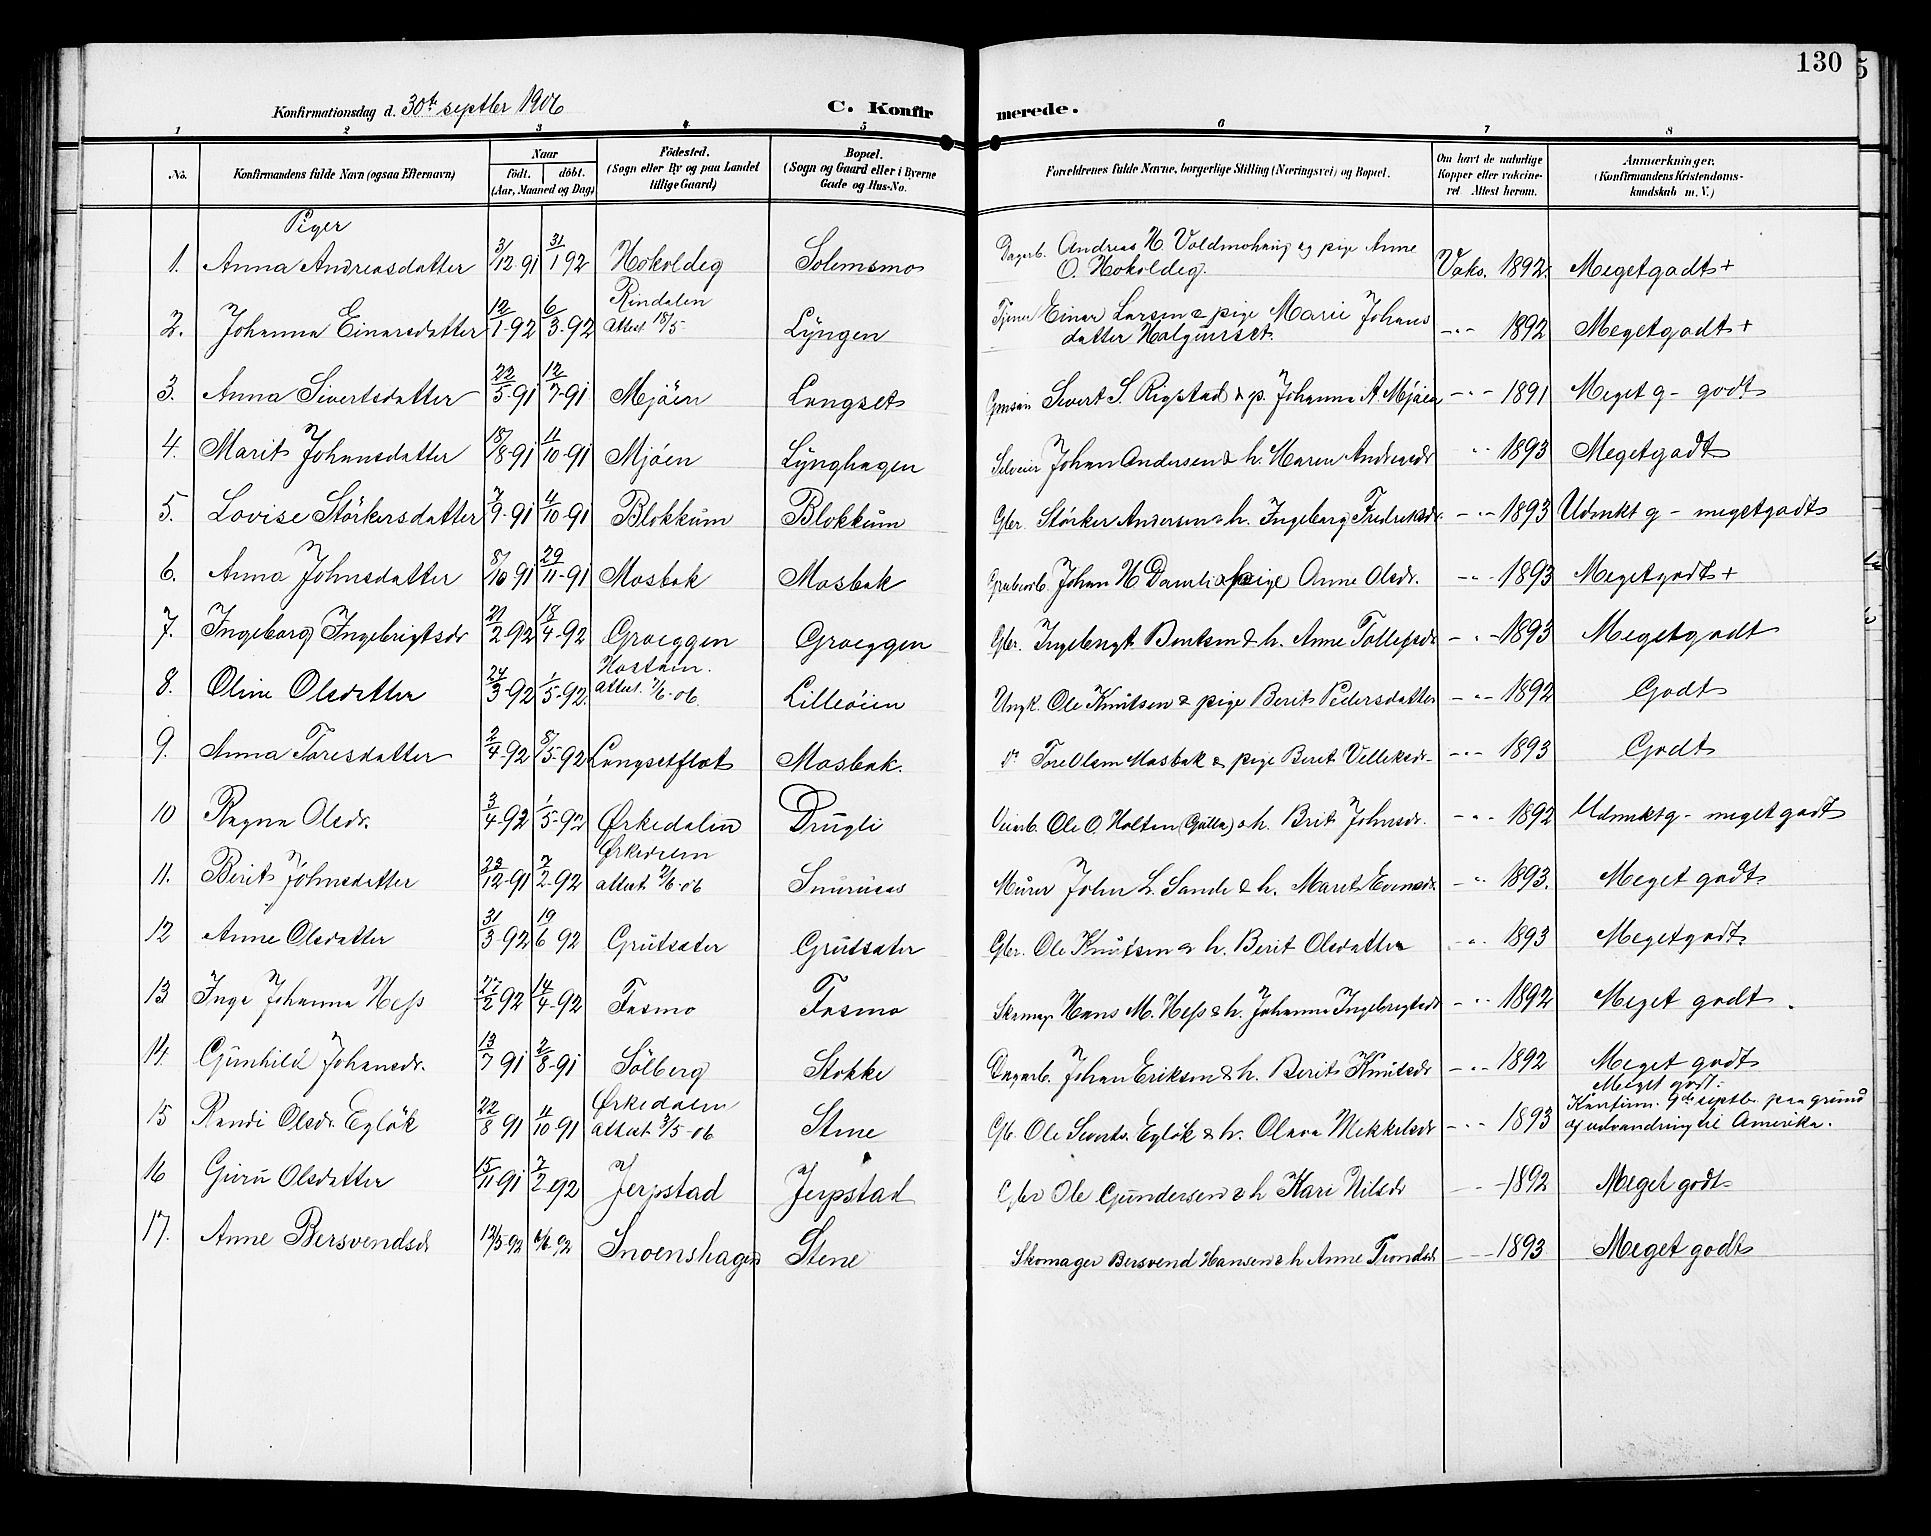 130
Konfirmationsdag d. 30te septbr 1906
C. Konfirmerede.
1 2 3 4 5 6 7 8
No. Konfirmandens fulde Navn (ogsaa Efternavn) Naar födt. döbt. (Aar, Maaned og Dag) Födested. (Sogn eller By og paa Landet tillige Gaard) Bopæl. (Sogn og Gaard eller i Byerne Gade og Hus-No. Forældrenes fulde Navne, borgerlige Stilling (Næringsvei) og Bopæl. Om havt de naturlige Kopper eller vakcineret. Attest herom. Anmærkninger. (Konfirmandens Kristendomskundskab m. V.)
Piger
1. Anna Andreasdatter 3/12-91 31/1 92 Hokoldeg Solemsmo Dagarb. Andreas H. Voldmohaug og pige Anne O. Hokoldeg. Vaks. 1892. Megetgodt +
2. Johanna Einarsdatter 12/1-92 6/3-92 Rindalen Attest 18/5 Lyngen Tjener Einar Larsen & pige Marie Johansdatter Halgunset. -"- 1892 Megetgodt +
3. Anna Sivertsdatter 22/5-91 12/7-91 Mjöen Langset Sivert S. Rigstad & p. Johanna A. Mjöen -"- 1891 Meget g- godt
4. Marit Johansdatter 18/8-91 11/10-91 Mjöen Lynghagen Selveier Johan Andersen & h. Maren Andreasdr " 1893 Megetgodt
5. Lovise Störkersdatter 7/9-91 4/10-91 Blokkum Blokkum Gbr. Störker Andersen & h. Ingeborg Fredriksdr. -"- 1893 Udmkt g - megetgodt
6. Anna Johnsdatter 8/10 91 29/11-91 Mosbak Mosbak Grubearb. Johan H Damli & pige Anne Olsdr. -"- 1893 Megetgodt +
7. Ingeborg Ingebrigtsdr 21/2 92 18/4-92 Græggen Græggen Gbr. Ingebrigt Bentsen & h. Anne Tollefsdr -"- 1893 Megetgodt
8. Oline Olsdatter 24/3-92 1/5-92. Attest 7/6-06. Lilleöien Ungk. Ole Knutsen & pige Berit Pedersdatter -"- 1892 Godt
9. Anna Toresdatter 2/4-92 8/5-92 Langsetflot Mosbak. do Tore Olsen Mosbak & pige Berit -"- 1893 Godt
10 Ragna Olsdr. 3/4-92 1/5-92 Ørkedalen Drugli Veiarb. Ole O. Holten (Gulla) & h. Brit Johnsdr. -"- 1892 Udmrktg - meget godt
11. Berit Johnsdatter 23/12-91 7/2-92 Ørkedalen attest 2/6-06 Snuruaas Murer John L. Sande & h. Marit Evensdr. -"- 1893. Meget godt.
12 Anne Olsdatter 31/3-92 19/6 92 Grutsæter Grutsæter Gbr. Ole Knutsen & h. Berit Olsdatter " 1893 Megetgodt.
13 Inga Johanna Hess 27/2 92 14/4-92 Fosmo Fosmo Skomag. Hans M. Hess & h. Johanna Ingebrigtsdr -"- 1892 Meget godt.
14. Gunhild Johansdr. 13/7 91 2/8-91 Sölberg Stokke Dagarb. Johan Eriksen & h. Berit Knutsdr -"- 1892 Meget godt
15 Randi Olsdr. Eglök 22/8 91 4/10 91 Ørkedalen attest 3/5-06 Stene Gbr. Ole Sivertsr. Eglök & h. Olava Mikkelsdr -"- 1893 Meget godt. Konfirm. 9de septb. paa grund af udvandring til Amerika.
16 Guru Olsdatter 15/11 91 7/2-92 Jerpstad Jerpstad Gbr Ole Gundersen & h Kari Nilsdr - - 1892 Meget godt
17. Anne Bersvendsdr 12/5-92 6/6-92 Snoenshagen Stene Skomager Bersvend Hansen & h Anne Trondsdr - - 1893 Meget godt